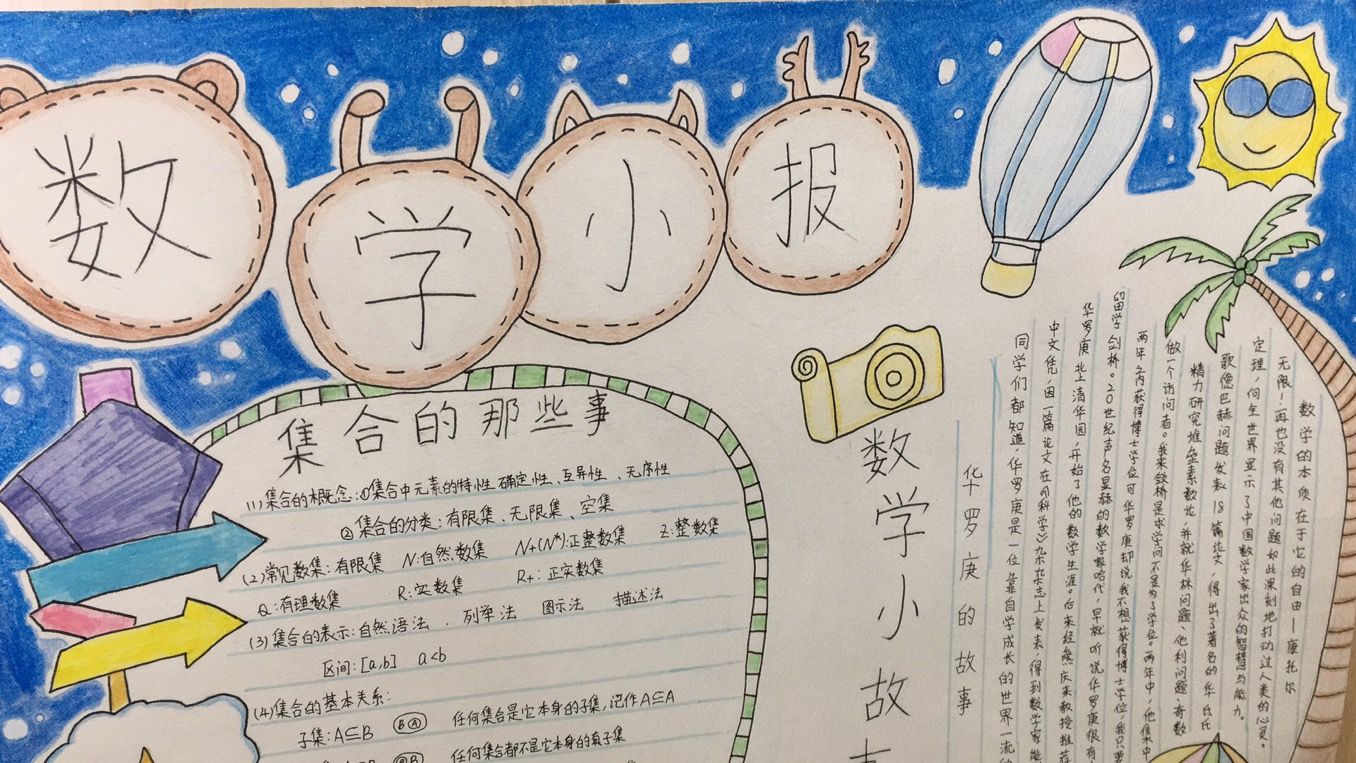 数学小报
集合的那些事
(1)集合的概念:①集合中元素的特性 确定性、互异性、无序性
②集合的分类:有限集、无限集、空集
(2)常见数集:有限集 N:自然数集 N+(N*):正整数集 Z:整数集
Q:有理数集 R:实数集 R+:正实数集
(3)集合的表示:自然语法、列举法 图示法 描述法
区间:[a,b] a<b
(4)集合的基本关系:
子集:A⊆B B A 任何集合是它本身的子集,记作A⊆A
任何集合都不是它本身的真子集
数学小故
华罗庚的故事
同学们都知道,华罗庚是一位靠自学成长的世界一流
中文凭,因一篇论文在《科学》杂志上发表,得到数学家熊
华罗庚北上清华园,开始了他的数学生涯。后来经熊庆来教授推荐
留学剑桥。20世纪声名显赫的数学家哈代,早就听说华罗庚很有
两年之内获得博士学位可华罗庚却说我不想获得博士学位,我只要
做一个访问者。我来剑桥是求学问不是为了学位。两年中,他集中
精力研究堆垒素数论,并就华林问题、他利问题、奇数
歌德巴赫问题发表18篇论文,得出了著名的华氏
定理,向全世界显示了中国数学家出众的智慧与能力。
无限!再也没有其他问题如此深刻地打动过人类的心灵。
数学的本质在于它的自由—康托尔